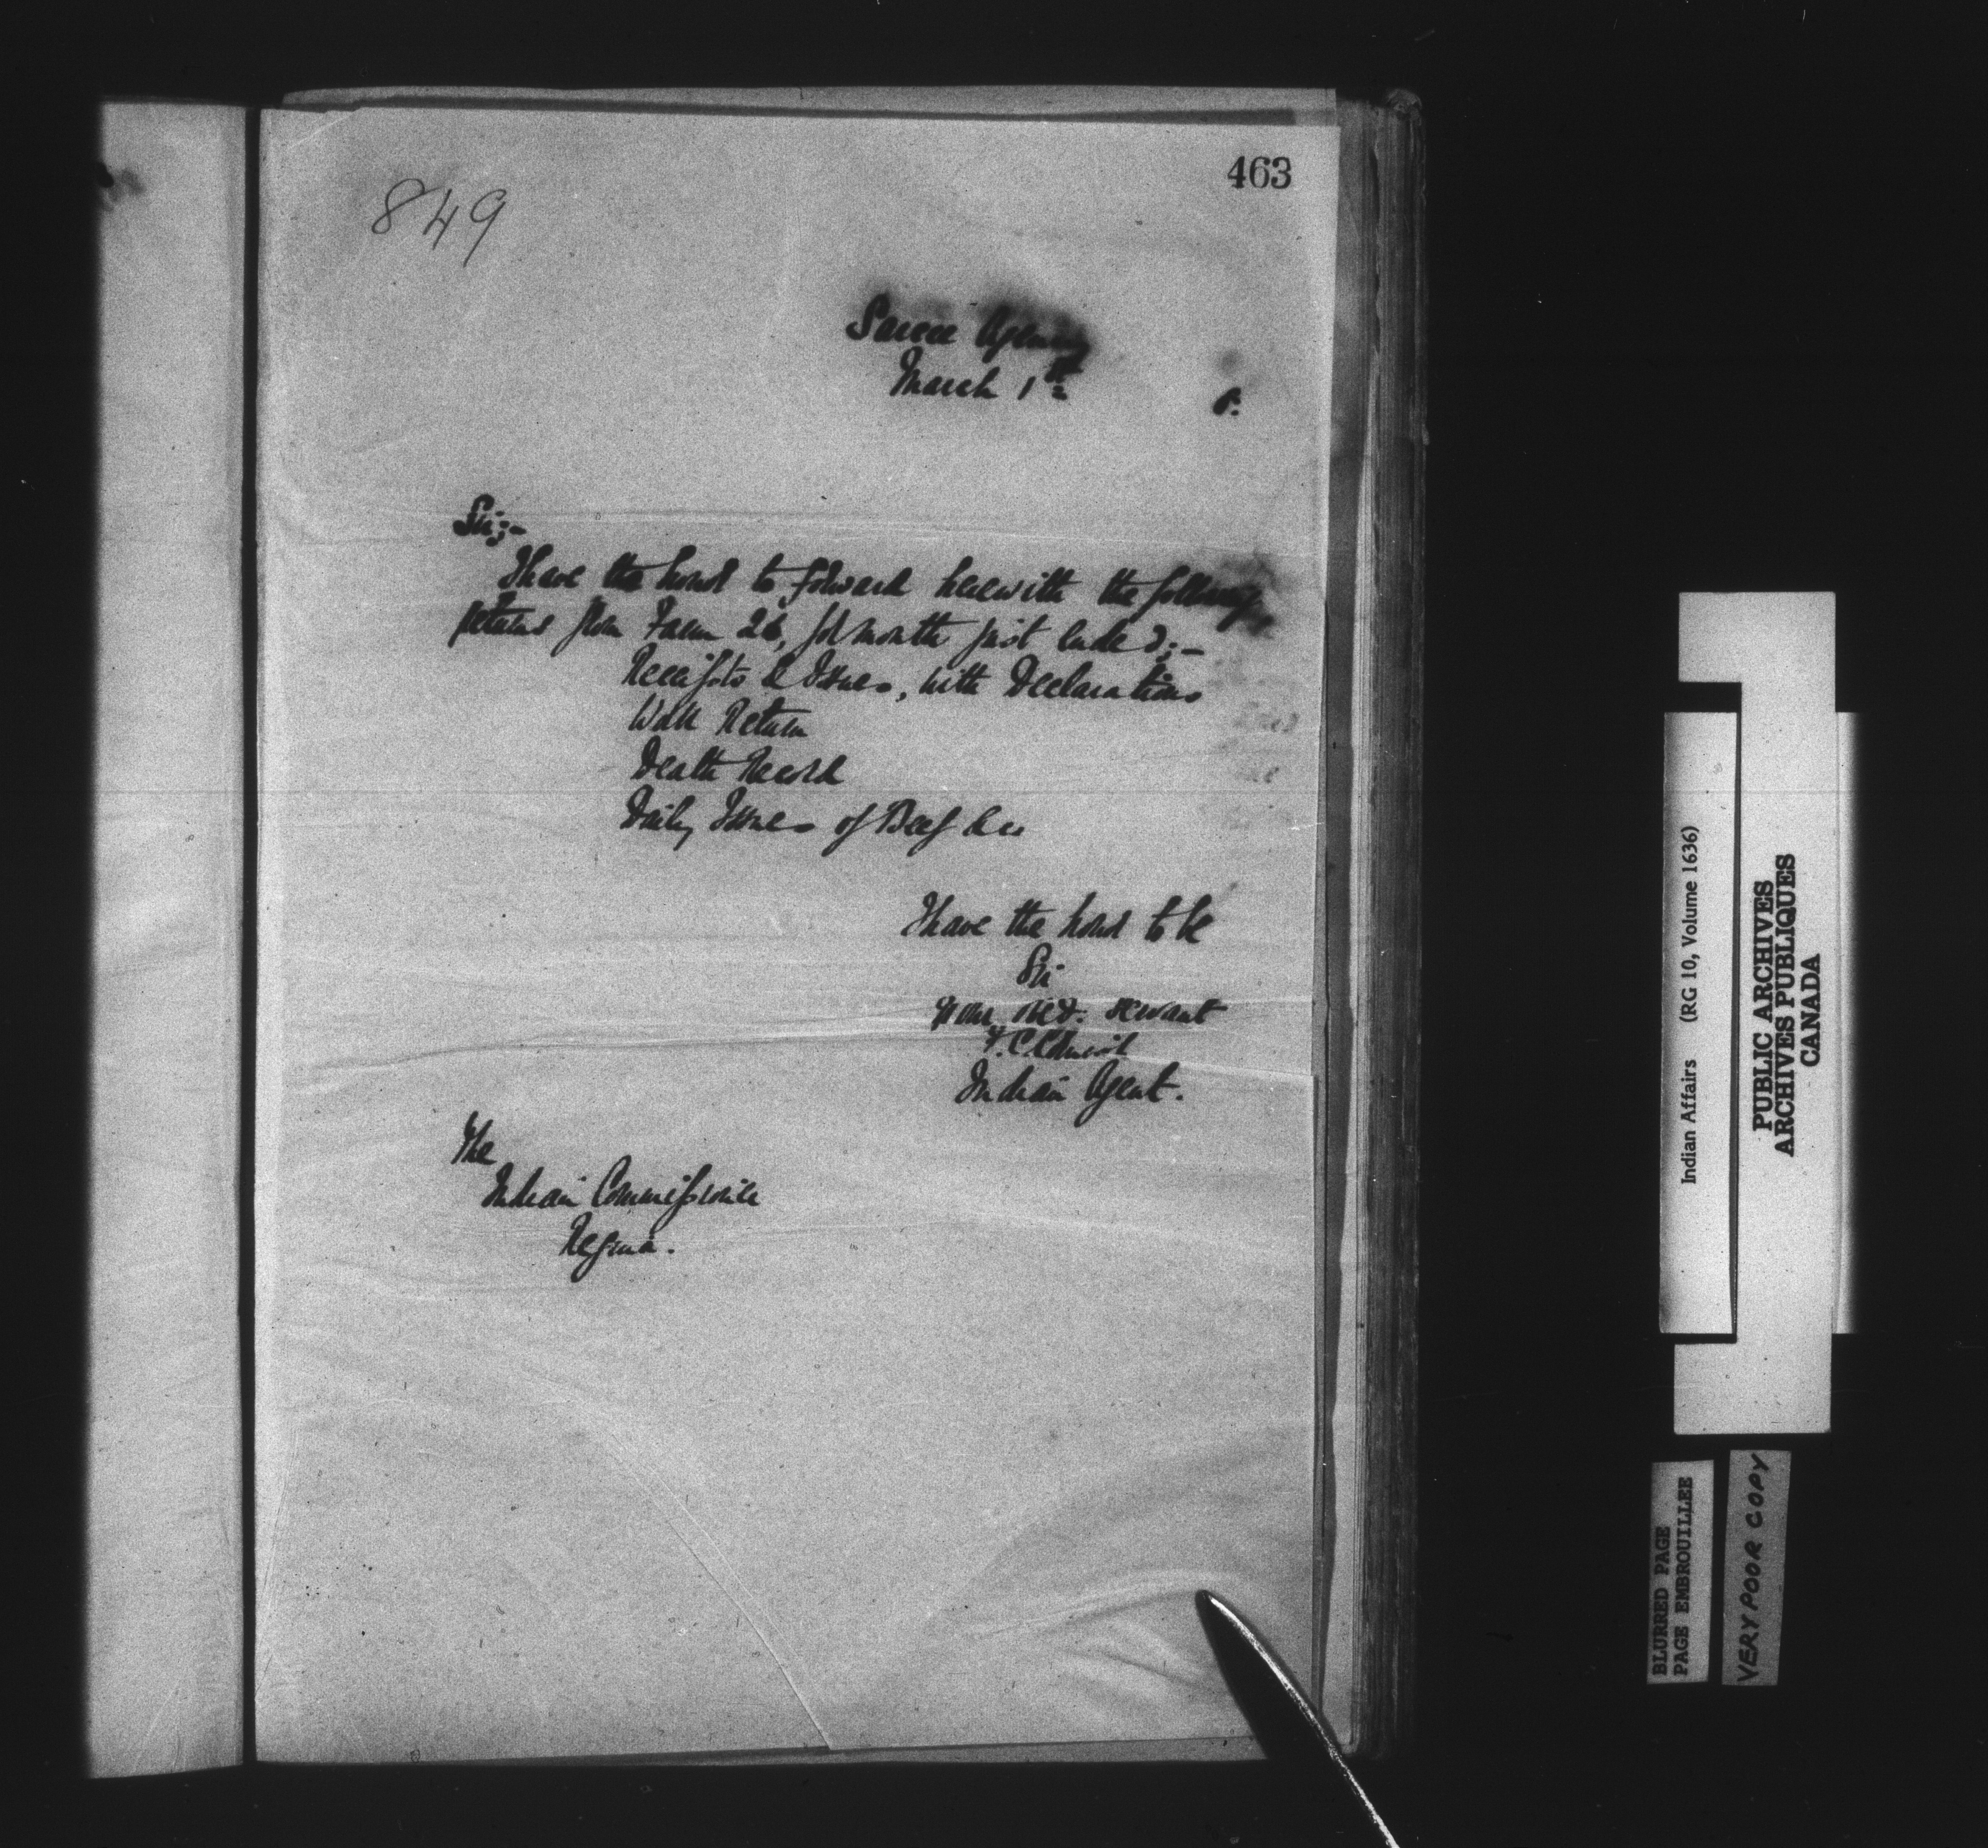 463
849
Sarcee Agency
March 1st
Sir;-
I have the honor to forward herewith the following
returns from Farm 26, for month just ended;-
Receipts & Issues, with Declarations
Work Return
Death Record
Daily Issues of Beef &c
I have the honor to be
Sir
Your obed. servant
Indian Agent.
The
Indian Commissioner
Regina.
Indian Affairs (RG 10, Volume 1636)
PUBLIC ARCHIVES
ARCHIVES PUBLIQUES
CANADA
BLURRED PAGE
PAGE EMBROUILLEE
VERY POOR COPY